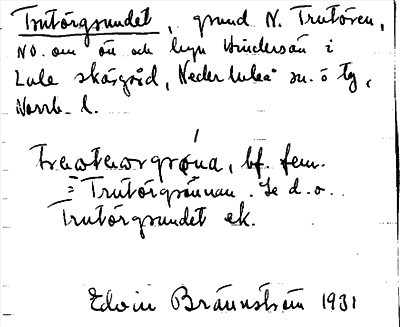 Trutörgsundet, grund N. Trutören,
NO. om ön och byn Hindersön i
Lule skärgård, Neder Luleå sn. o tg,
Norrb. l.
bf. fem.
= Trutörgrönnan. Se d. o.
Trutörgsundet ek.
Edvin Brännström 1931